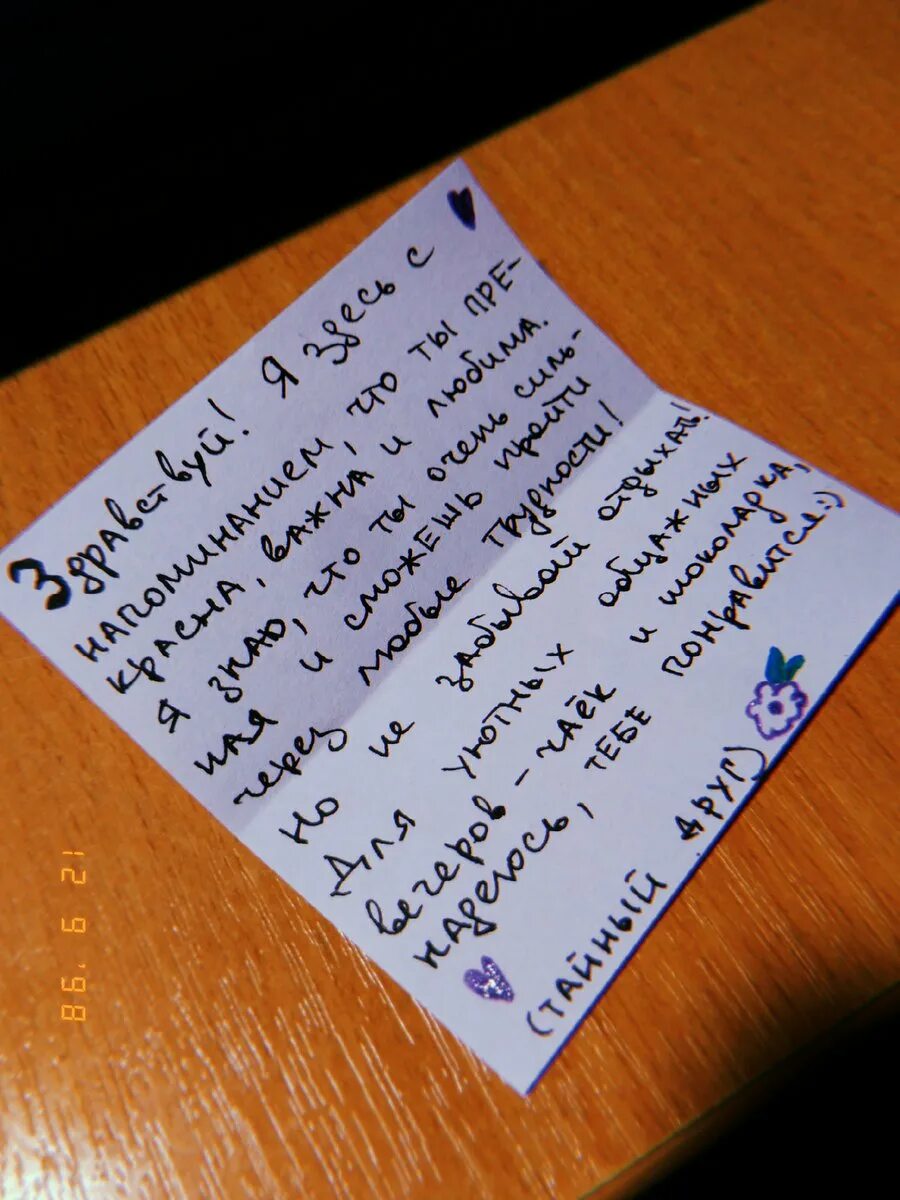 Здравствуй! Я здесь с
напоминанием, что ты пре-
красна, важна и любима.
Я знаю, что ты очень силь-
ная и сможешь пройти
через любые трудности!
Но не забывай отдыхать!
Для уютных общажных
вечеров - чаёк и шоколадка,
надеюсь, тебе понравится:)
(тайный друг)
12 6 '98